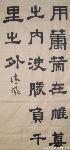 用在帷幕
之内決勝負千
里之外